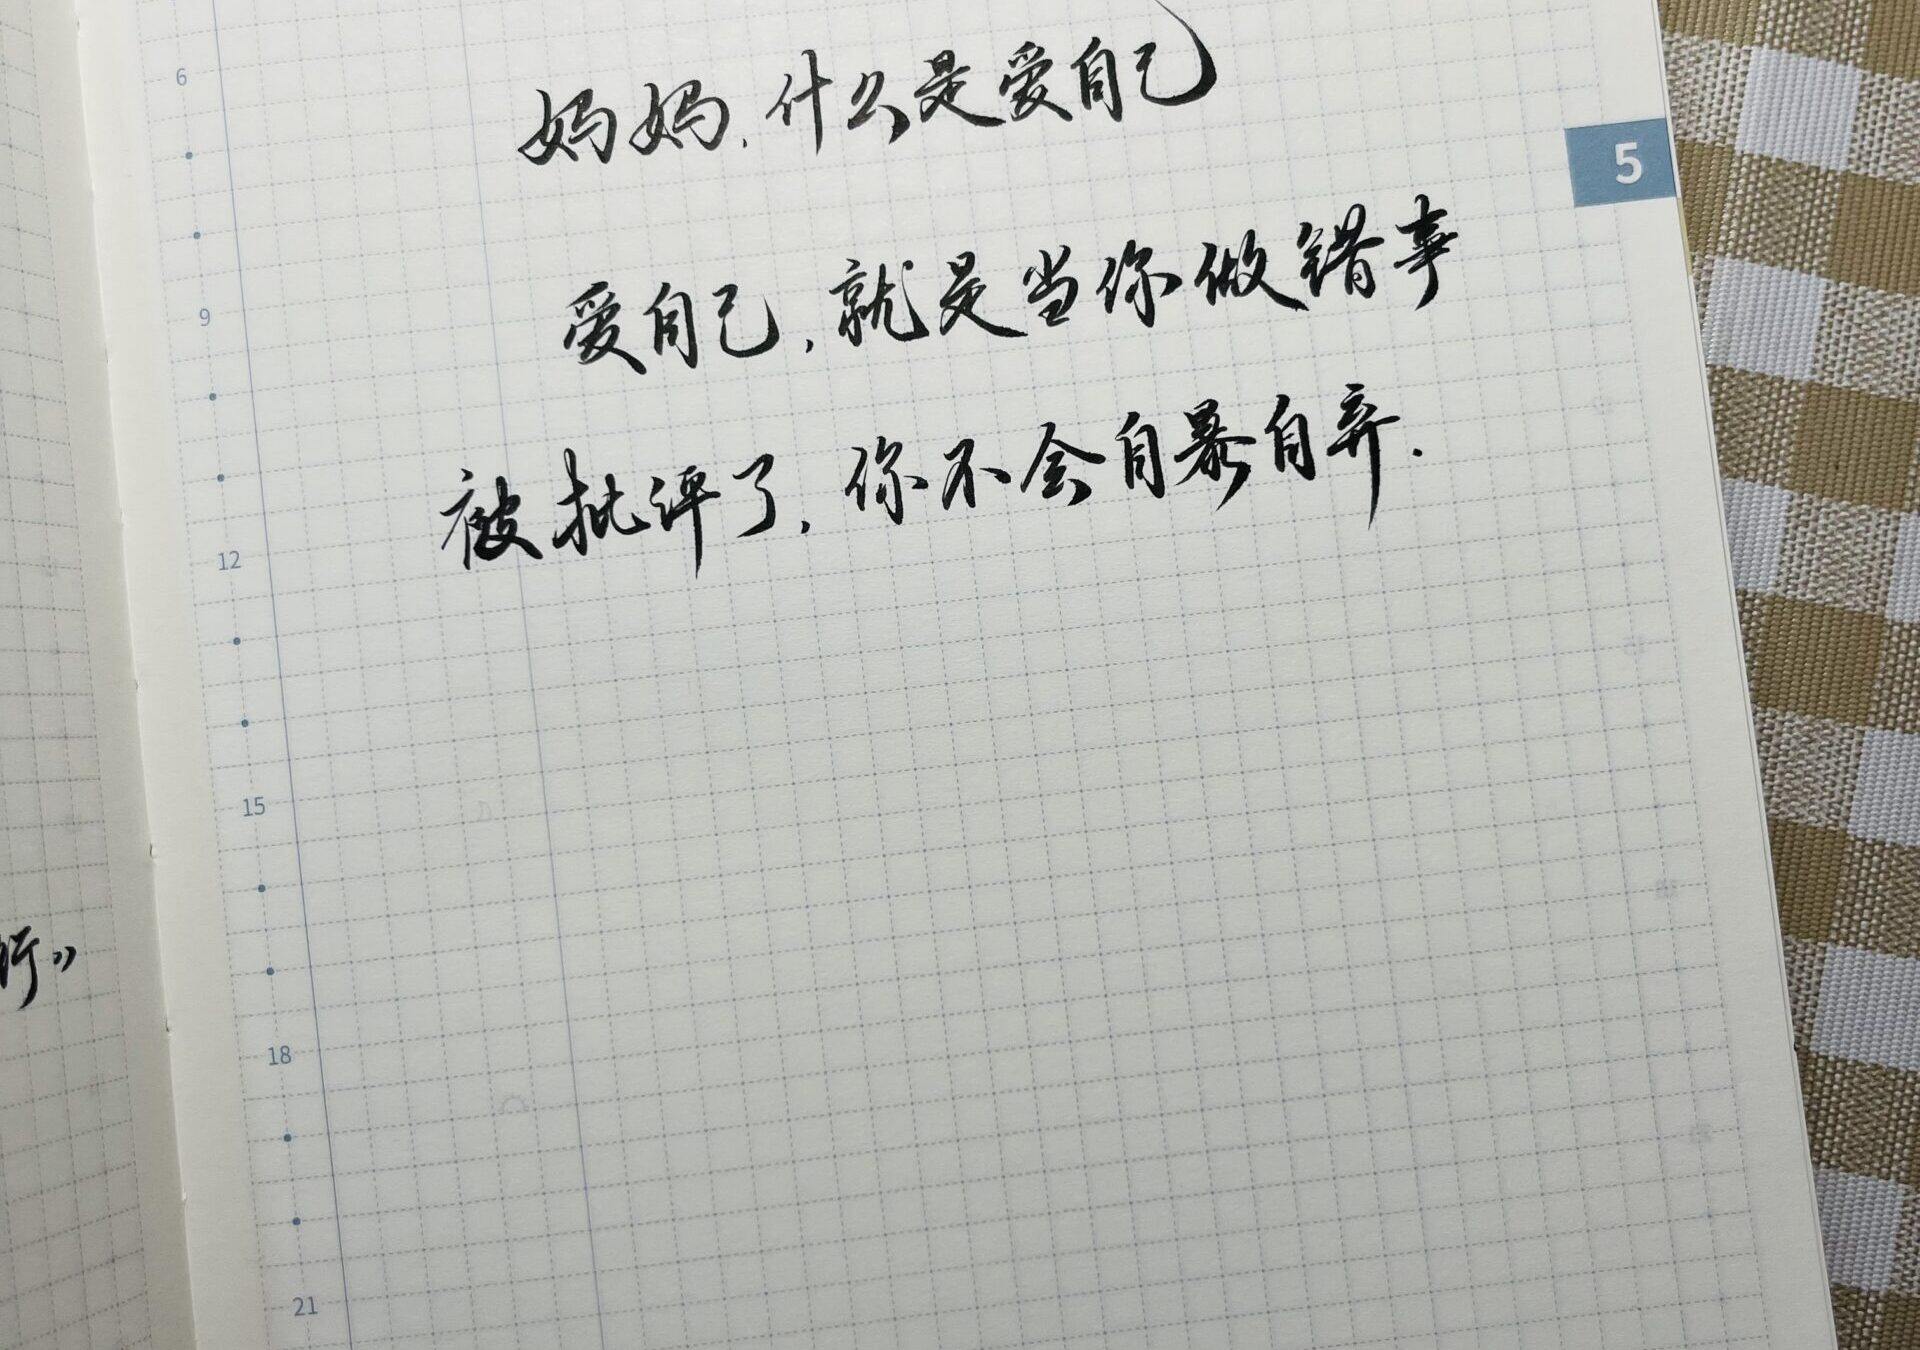 6
妈妈,什么是爱自己
5
爱自己,就是当你做错事
9
被批评了,你不会自暴自弃.
12
15
行》
18
21